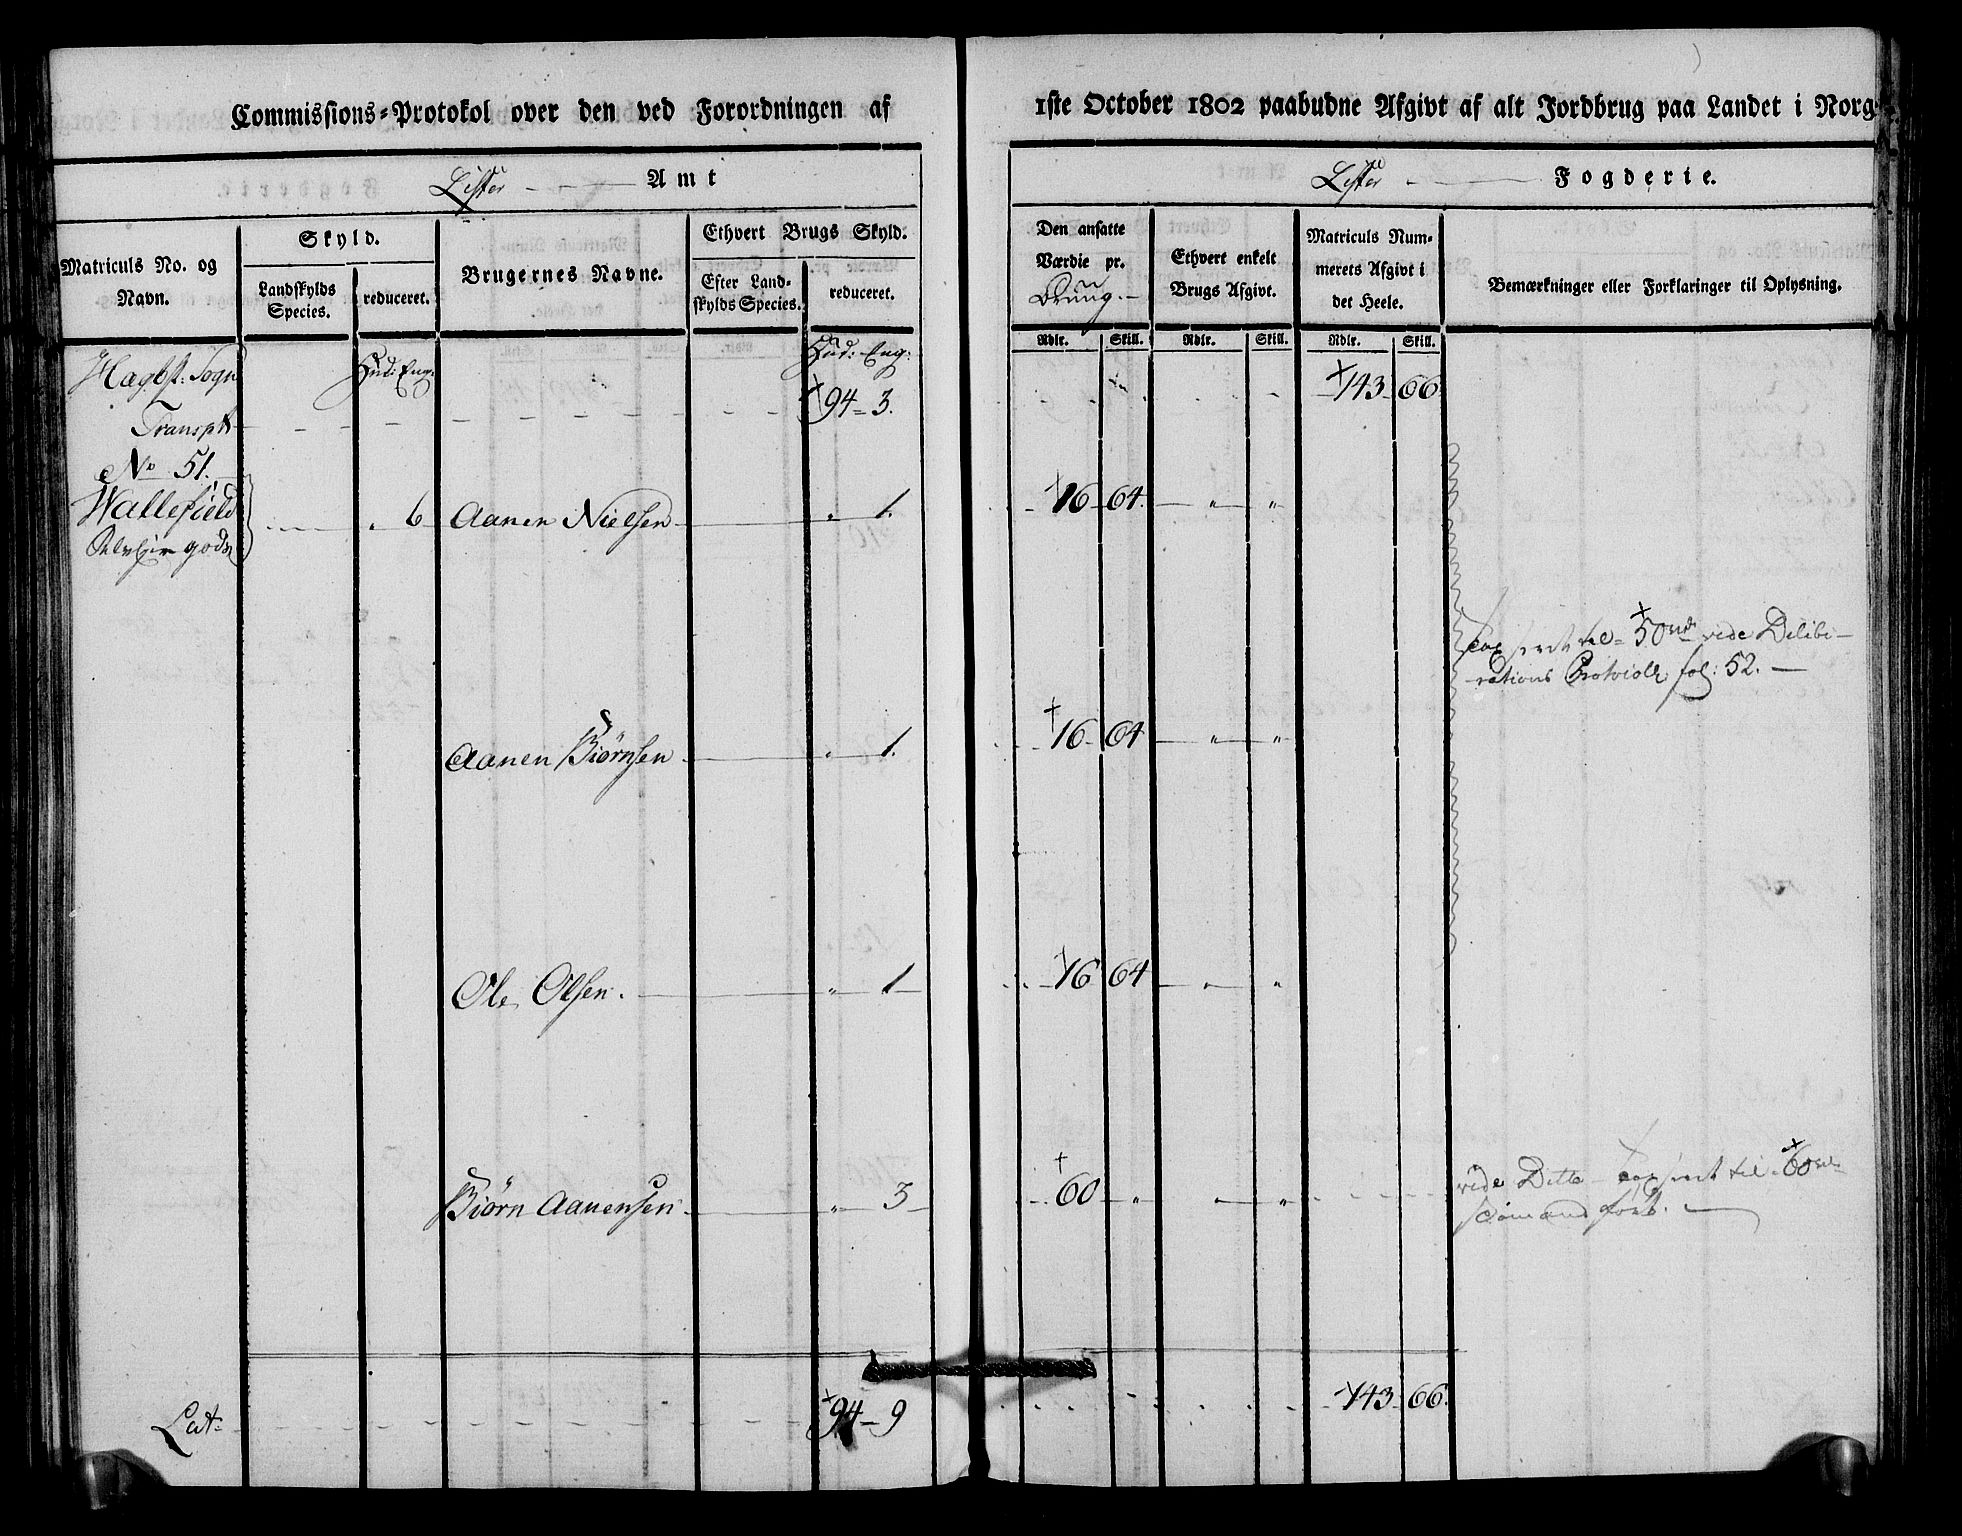 Commissions-Protokol over den ved Forordningen af
1ste October 1802 paabudne Afgivt af alt Jordbrug paa Landet i Norg
Lister Amt
Lister Fogderie.
Matriculs No. og Navn.
Skyld.
Landskylds Species.
reduceret.
Brugernes Navne.
Ethvert Brugs Skyld.
Efter Landskylds Species.
reduceret.
Den ansatte Værdie pr. Brung.
Ethvert enkelt Brugs Afgivt.
Matriculs Nummerets Afgivt i det Heele.
Bemærkninger eller Forklaringer til Oplysning.
Rdlr. Skill. Rdlr. Skill. Rdlr. Skill.
Hægbst: Sogn Hud: Eng: Hud: Eng:
Transpt 94 - 3. 143 66
No 51.
Wattefield 6 Aanen Nielsen " 1. 16 64 " "
Selveier gods
til 50 rd vide Delibe-
rations fol: 52.
Aanen Biørnsen " 1. 16 64 " "
Ole Olsen. " 1 16 64 " "
Biørn Aanensen " 3 60 " " "
vide Ditto til 60 rd
Lat 94 - 9 143 66.